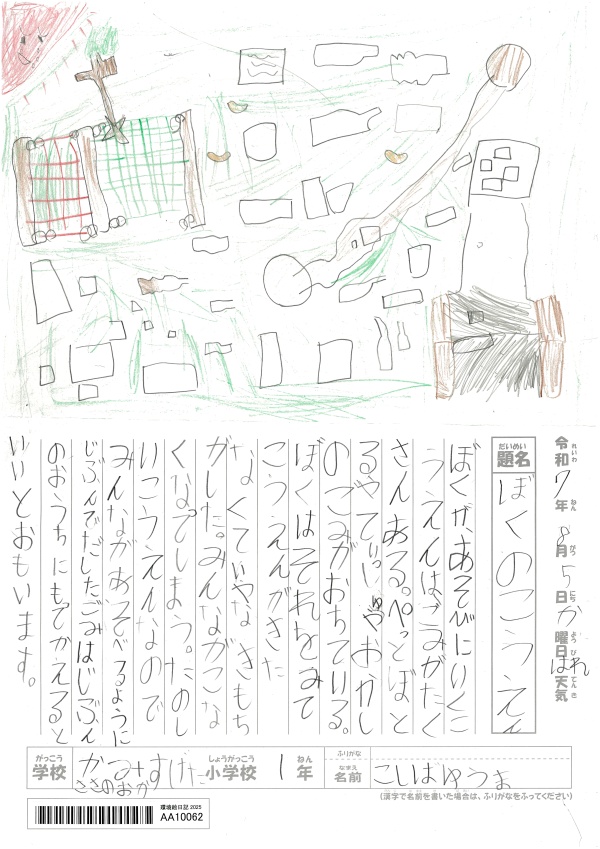 令和7年8月5日か曜日はれ天気
れいわ ねん がつ にち ようび てんき
だいめい
題名 ぼくのこうえん
ぼくが、あそびにいくこ
うえんはごみがたく
さんある。ぺっとぼと
るやてぃっしゅやおかし
のごみがおちている。
ぼくはそれをみて
こうえんがきた
なくていやなきもち
がした。みんながこな
くなってしまう。たのし
いこうえんなので
みんながあそべるように
じぶんでだしたごみはじぶん
のおうちにもってかえると
いいとおもいます。
がっこう しょうがっこう ねん ふりがな
学校 小学校 1年 なまえ 名前
(漢字で名前を書いた場合は、ふりがなをふってください)
環境絵日記 2025
AA10062